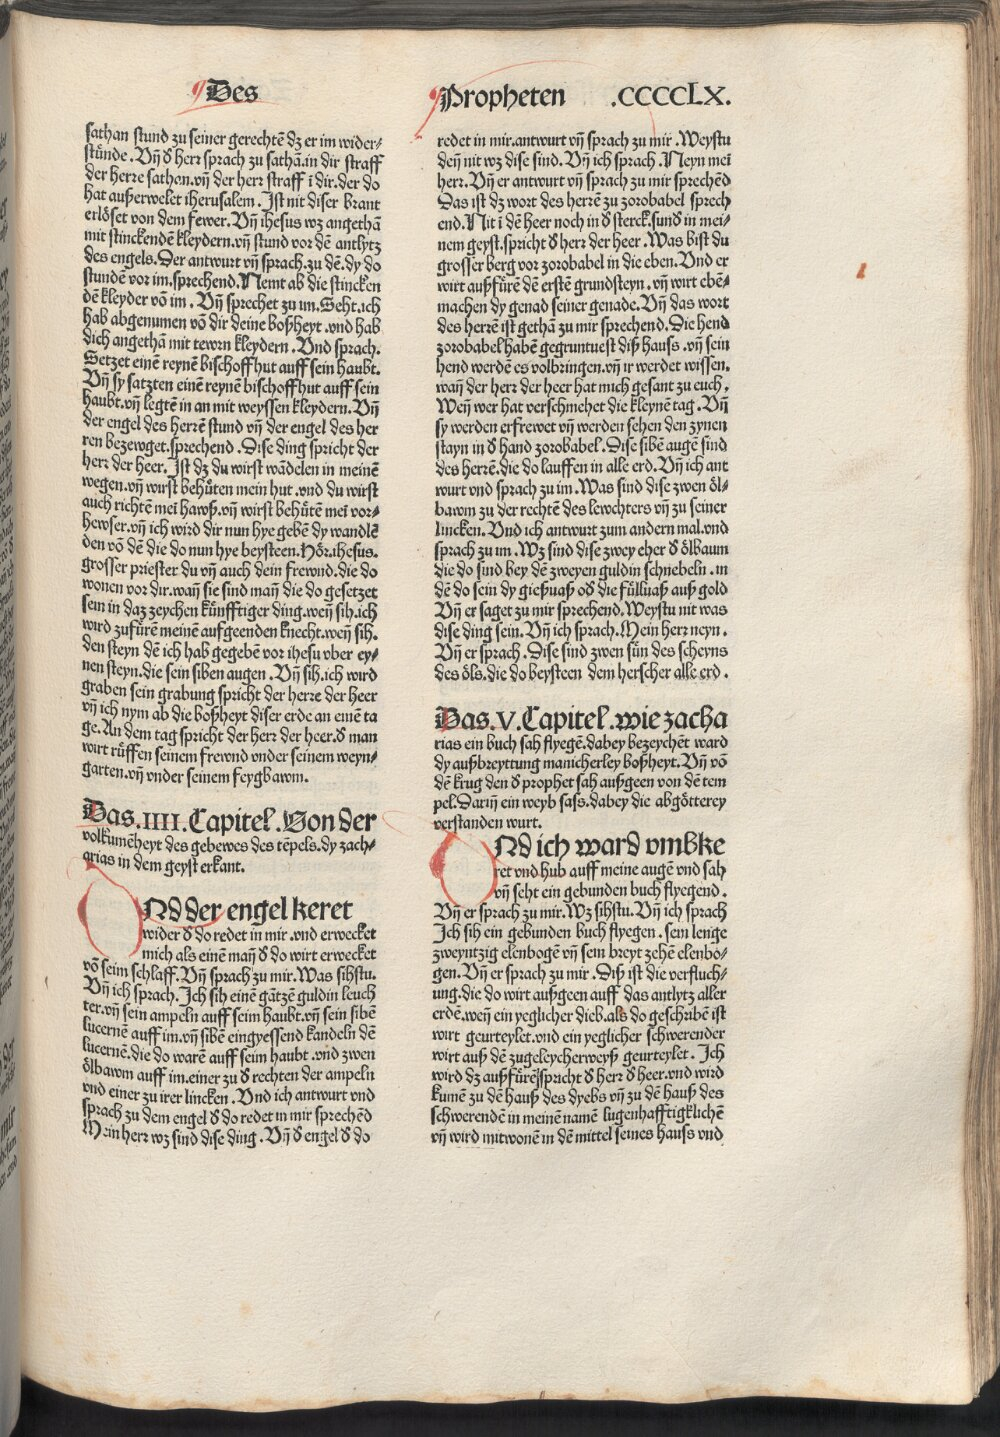 Des
Propheten .CCCCLX.
sathan stund zu seiner gerechtē dz er im wider⸗
stünde. Vn̄ d herr sprach zu sathā.in dir straff
der herre sathan.vn̄ der herr straff ī dir.der do
hat außerwelet iherusalem. Ist nit diser brant
erlöset von dem fewer. Vn̄ ihesus wz angethā
mit stinckendē kleydern.vn̄ stund vor dē antlytz
des engels. Der antwurt vn̄ sprach.zu dē.dy do
stundē vor im.sprechend. Nemt ab die stincken
dē kleyder vō im. Vn̄ sprechet zu im. Seht.ich
hab abgenumen vō dir deine boßheyt.vnd hab
dich angethā mit tewrn kleydern. Vnd sprach.
Setzet einē reynē bischoff hut auff sein haubt.
Vn̄ sy satzten einē reynē bischoff hut auff sein
haubt.vn̄ legtē in an mit weyssen kleydern. Vn̄
der engel des herrē stund vn̄ der engel des her
ren bezewget.sprechend. Dise ding spricht der
herr der heer. Ist dz du wirst wādelen in meinē
wegen.vn̄ wirst behüten mein hut.vnd du wirst
auch richtē mei hawß.vn̄ wirst behütē mei vor⸗
hewser.vn̄ ich wird dir nun hye gebē dy wandlē
den vō dē die do nun hye beysteen. Hör.ihesus.
grosser priester du vn̄ auch dein frewnd.die do
wonen vor dir.wan̄ sie sind man̄ die do gesetzet
sein in daz zeychen künfftiger ding.wen̄ sih.ich
wird zufürē meinē aufgeenden knecht.wen̄ sih.
den steyn dē ich hab gegebē vor ihesu vber ey⸗
nen steyn.die sein siben augen. Vn̄ sih.ich wird
graben sein grabung spricht der herre der heer
vn̄ ich nym ab die boßheyt diser erde an einē ta
ge. An dem tag spricht der herr der heer.d man
wirt rüffen seinem frewnd vnder seinem weyn⸗
garten.vn̄ vnder seinem feygbawm.
Das.IIII.Capitel.Von der
volkumēheyt des gebewes des tēpels.dy zach⸗
arias in dem geyst erkant.
Nd der engel keret
wider d do redet in mir.vnd erwecket
mich als einē man̄ d do wirt erwecket
vō seim schlaff. Vn̄ sprach zu mir. Was sihstu.
Vn̄ ich sprach. Ich sih einē gātzē guldin leuch
ter.vn̄ sein ampeln auff seim haubt.vn̄ sein sibē
lucernē auff im.vn̄ sibē eingyessend kandeln dē
lucernē.die do warē auff seim haubt.vnd zwen
ölbawm auff im.einer zu d rechten der ampeln
vnd einer zu irer lincken. Vnd ich antwurt vnd
sprach zu dem engel d do redet in mir sprechēd
Mein herr wz sind dise ding. Vn̄ d engel d do
redet in mir.antwurt vn̄ sprach zu mir. Weystu
den̄ nit wz dise sind. Vn̄ ich sprach. Neyn mei
herr. Vn̄ er antwurt vn̄ sprach zu mir sprechēd
Das ist dz wort des herrē zu zorobabel sprech
end. Nit ī dē heer noch in d sterck.sund in mei⸗
nem geyst.spricht d herr der heer. Was bist du
grosser berg vor zorobabel in die eben. Vnd er
wirt außfürē dē erstē grundsteyn.vn̄ wirt ebē⸗
machen dy genad seiner genade. Vn̄ das wort
des herrē ist gethā zu mir sprechend. Die hend
zorobabel habē gegruntuest diß hauss.vn̄ sein
hend werdē es volbringen.vn̄ ir werdet wissen.
wan̄ der herr der heer hat mich gesant zu euch.
Wen̄ wer hat verschmehet die kleynē tag. Vn̄
sy werden erfrewet vn̄ werden sehen den zynen
stayn in d hand zorobabel. Dise sibē augē sind
des herrē.die do lauffen in alle erd. Vn̄ ich ant
wurt vnd sprach zu im. Was sind dise zwen öl⸗
bawm zu der rechtē des lewchters vn̄ zu seiner
lincken. Vnd ich antwurt zum andern mal.vnd
sprach zu im. Wz sind dise zwey eher d ölbaum
die do sind bey dē zweyen guldin schnebeln.in
dē do sein dy gießuaß od die füllūaß auß gold
Vn̄ er saget zu mir sprechend. Weystu nit was
dise ding sein. Vn̄ ich sprach. Mein herr neyn.
Vn̄ er sprach. Dise sind zwen sün des scheyns
des öls.die do beysteen dem herscher alle erd.
Das.V.Capitel.wie zacha
rias ein buch sah flyegē.dabey bezeychēt ward
dy außbreyttung manicherley boßheyt. Vn̄ vō
dē krug den d prophet sah außgeen von dē tem
pel. Darin̄ ein weyb sass.dabey die abgötterey
verstanden wurt.
Nd ich ward vmbke
ret vnd hub auff meine augē vnd sah
vn̄ seht ein gebunden buch flyegend.
Vn̄ er sprach zu mir. Wz sihstu. Vn̄ ich sprach
Ich sih ein gebunden buch flyegen.sein lenge
zweyntzig elenbogē vn̄ sein breyt zehē elenbo⸗
gen. Vn̄ er sprach zu mir. Diß ist die verfluch⸗
ung.die do wirt außgeen auff das antlytz aller
erdē.wen̄ ein yeglicher dieb.als do geschribē ist
wirt geurteylet.vnd ein yeglicher schwerender
wirt auß dē zugeleycherweyß geurteylet. Ich
wird dz außfürē spricht d herr d heer.vnd wird
kumē zu dē hauß des dyebs vn̄ zu dē hauß des
schwerendē in meinē namē lugenhafftigklichē
vn̄ wird mitwonē in dē mittel seines hauss vnd